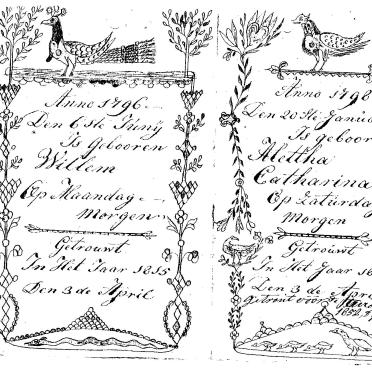 Anno 1796
Den 6 ste Junij
Is Gebooren
Willem
Op Maandag
Morgen
Getrouwt
In Het Jaar 1815
Den 3 de April
Anno 1798
Den 20 ste Janua
Is geboor
Alettha
Catharina
Op Zaturda
Morgen
Getrouwt
In Het Jaar 18
Den 3 de Apri
getrout voor de
1852